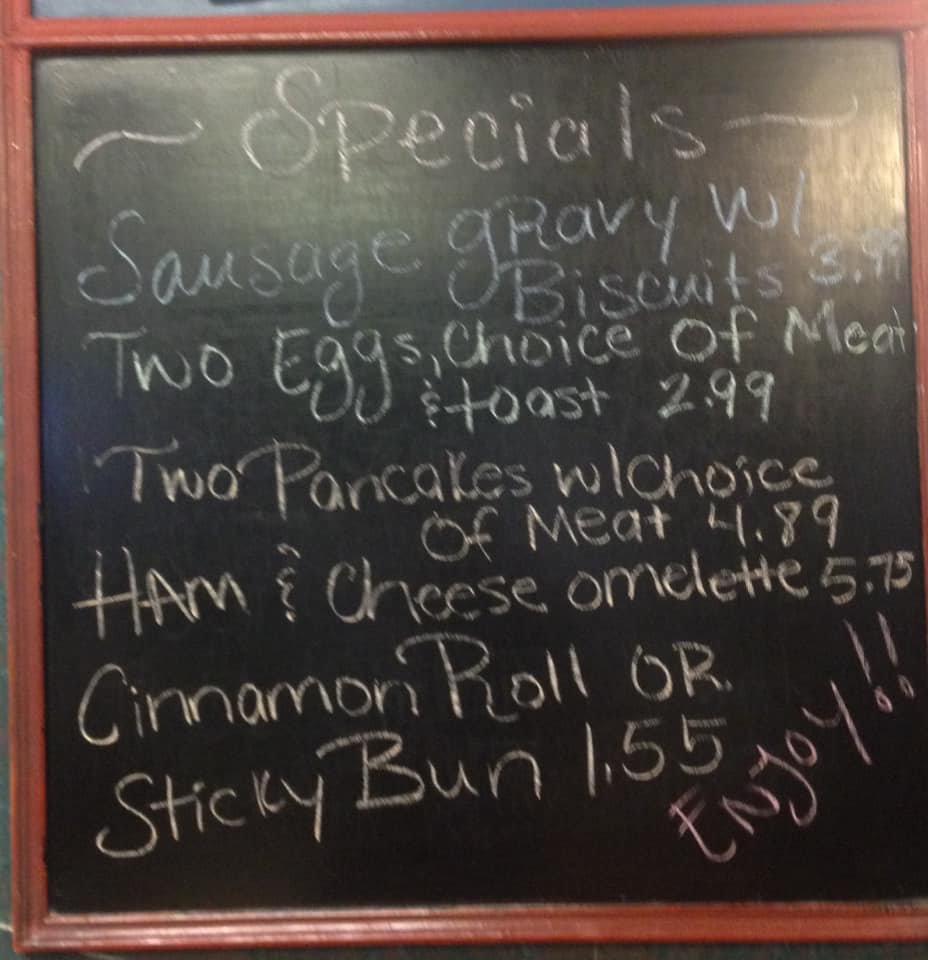 ~ Specials ~
Sausage gravy w/
Biscuits 3.99
Two Eggs, Choice Of Meat
& toast 2.99
Two Pancakes w/Choice
Of Meat 4.89
HAm & Cheese omelette 5.75
Cinnamon Roll OR
Sticky Bun 1.55
Enjoy!!